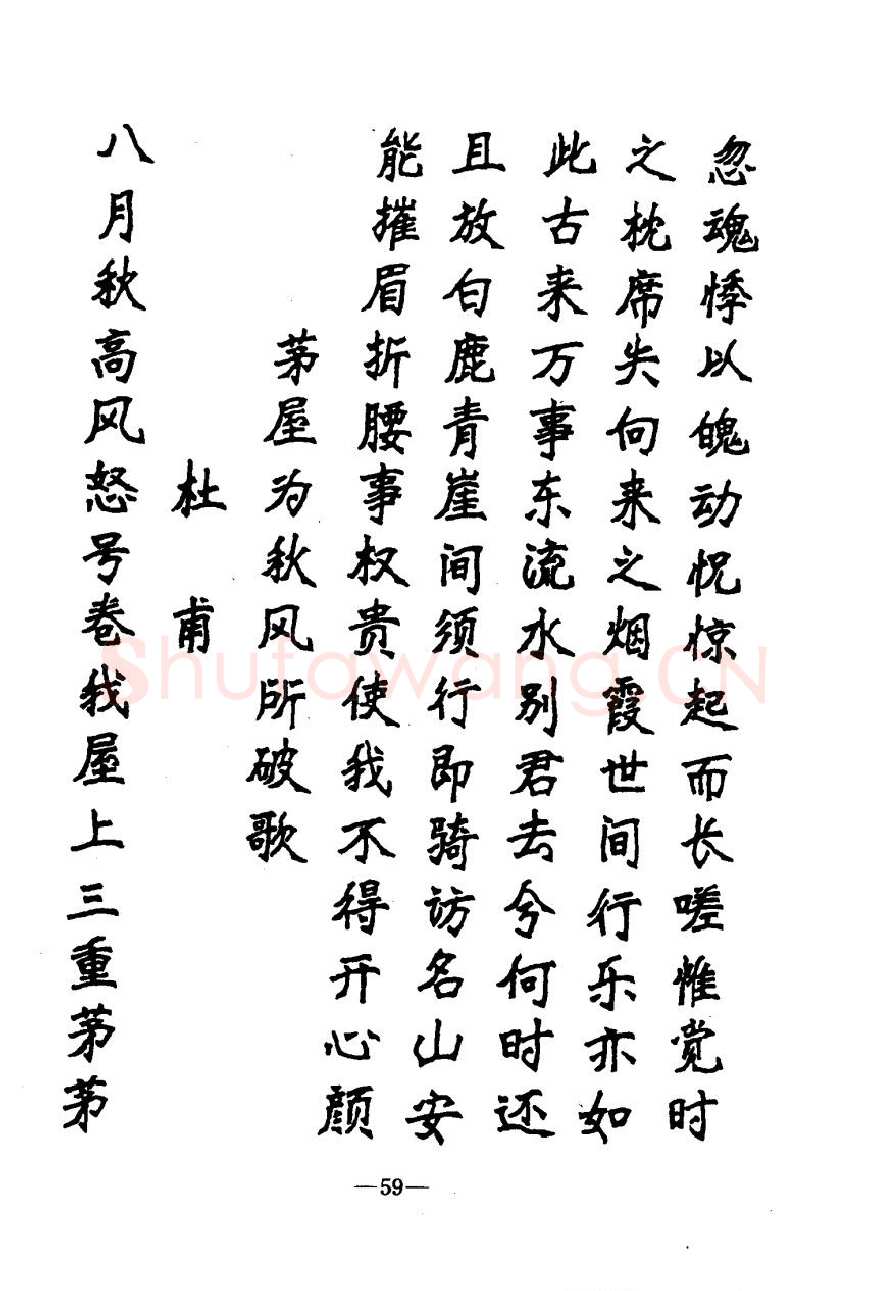 忽魂悸以魄动怳惊起而长嗟惟觉时
之枕席失向来之烟霞世间行乐亦如
此古来万事东流水别君去兮何时还
且放白鹿青崖间须行即骑访名山安
能摧眉折腰事权贵使我不得开心颜
茅屋为秋风所破歌
杜甫
八月秋高风怒号卷我屋上三重茅茅
—59—
Shufawang.CN